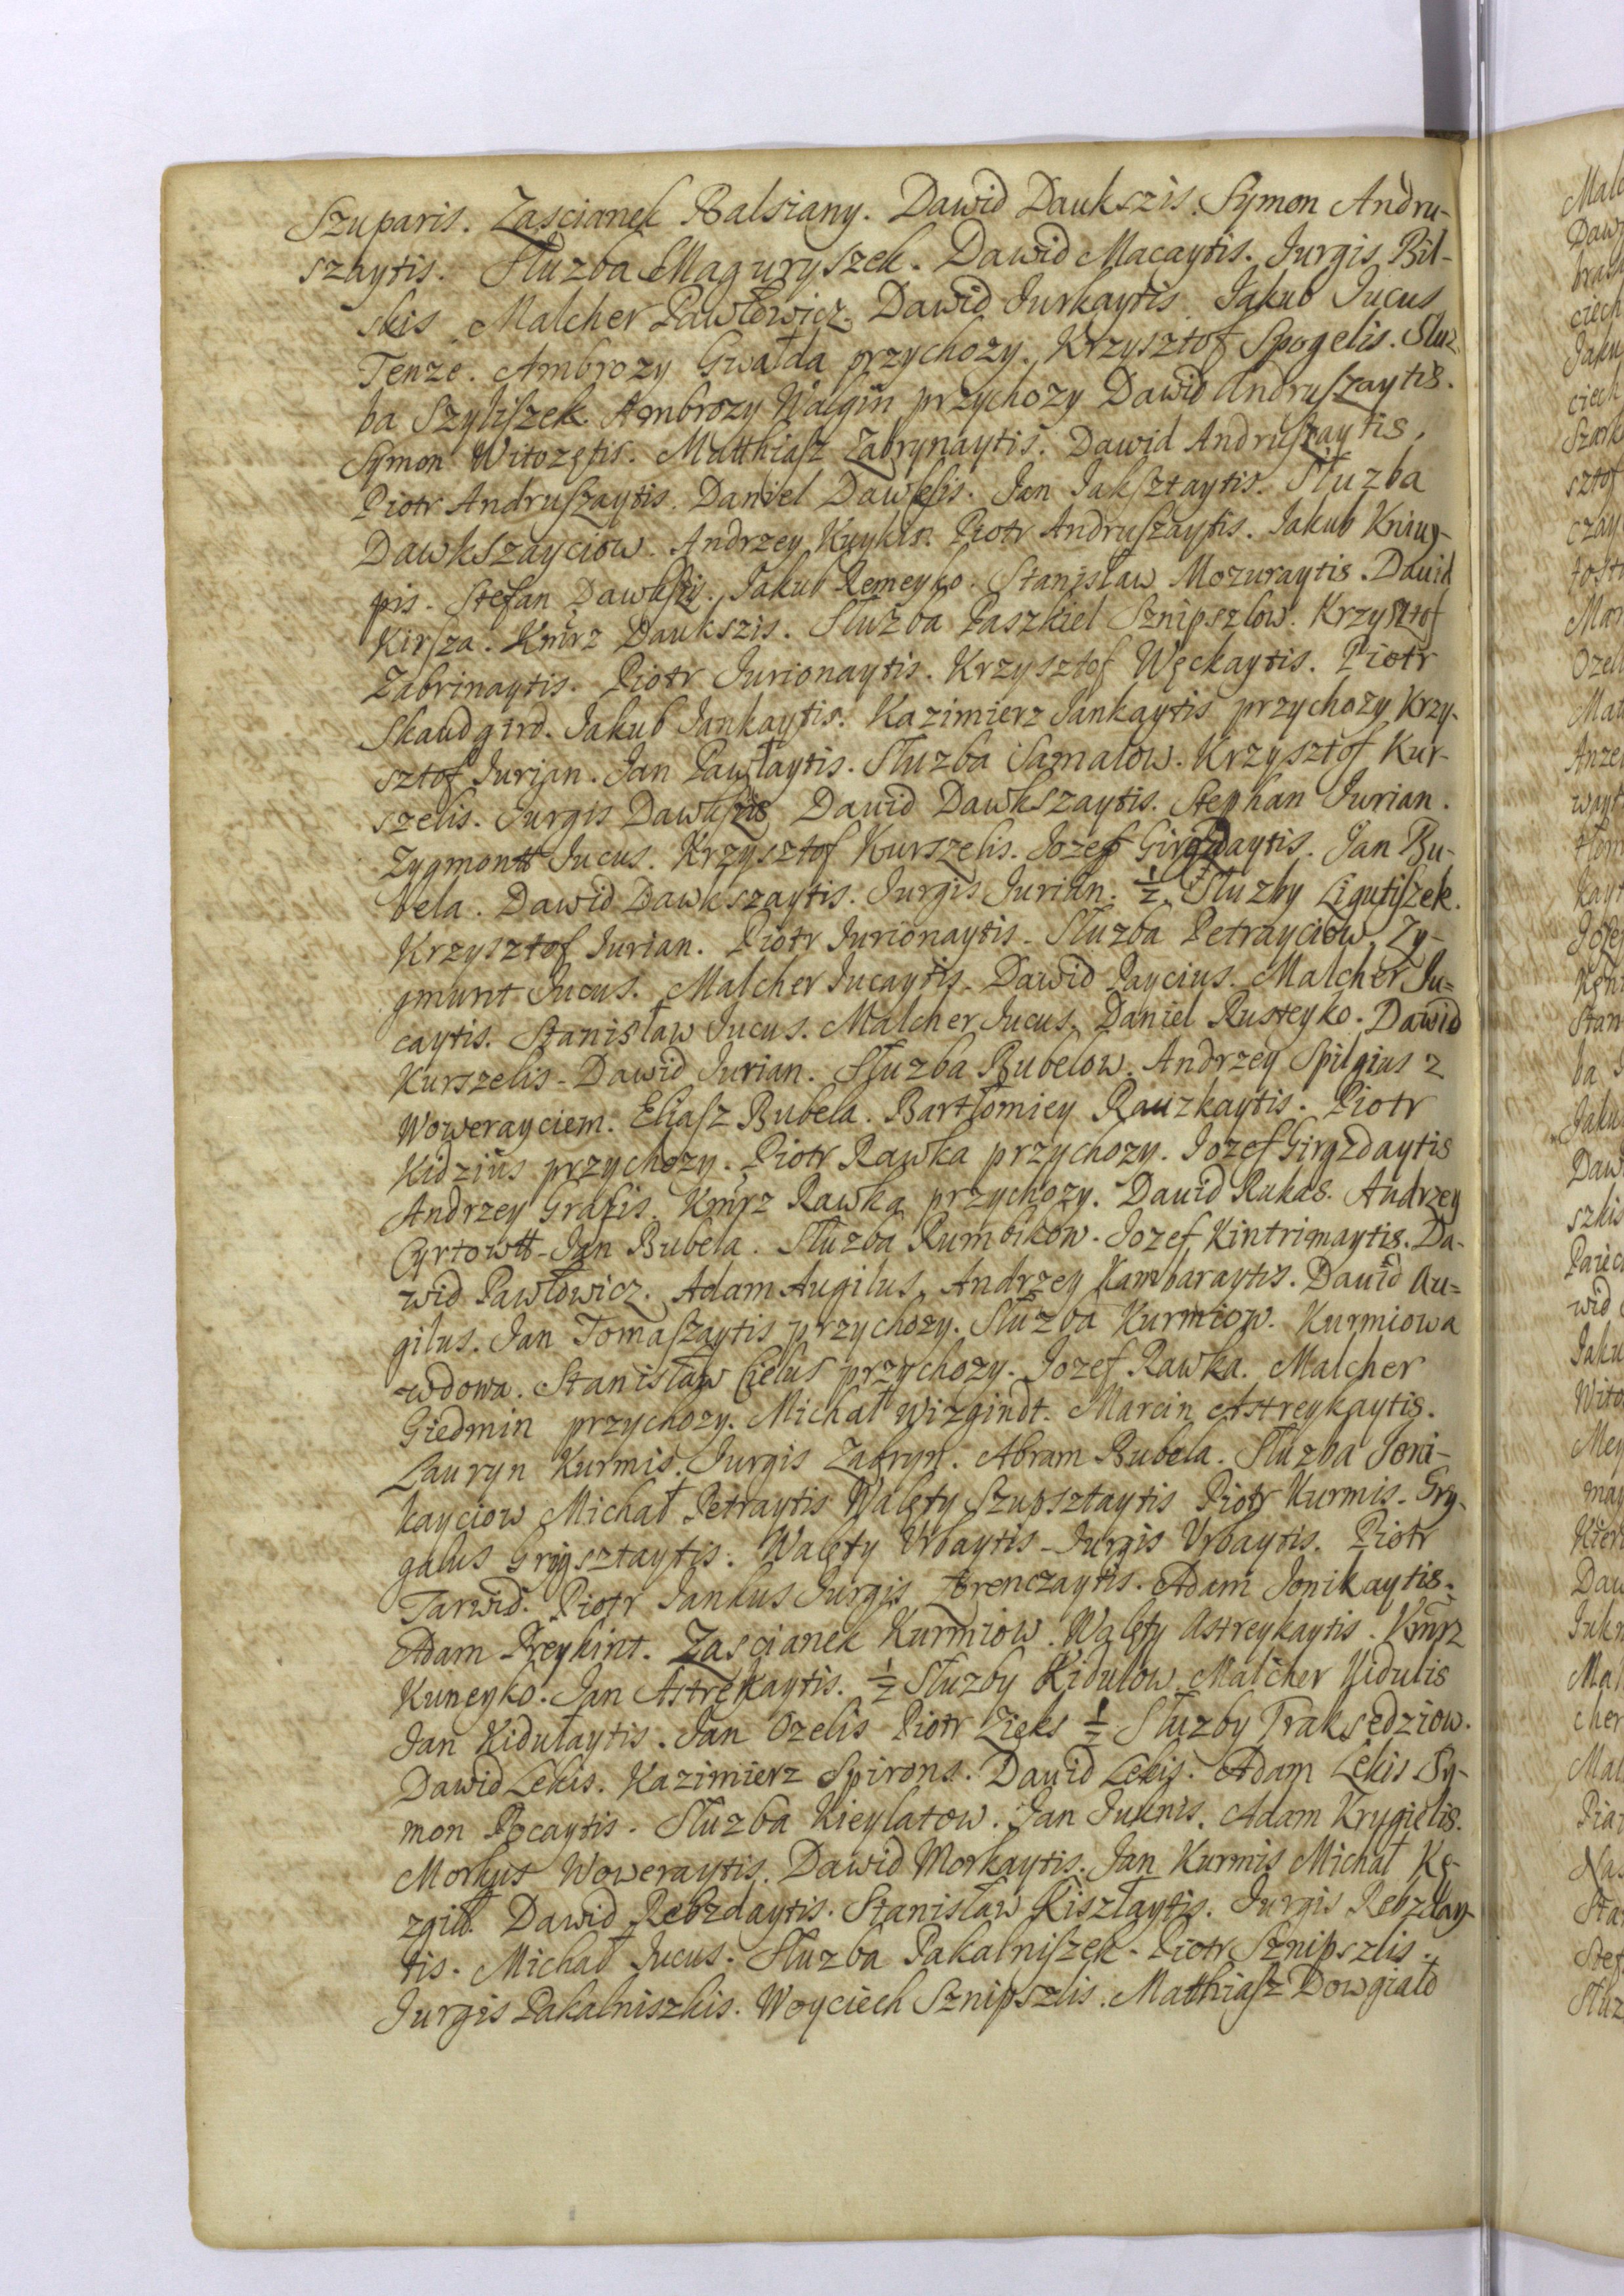 Szuparis. Zascianek Balsiany. Dawid Daukszis. Symon Andru-
szaytis. Służba Maguryszek. Dawid Macaytis. Jurgis Bil-
skis Malcher Pawłowicz. Dawid Jurkaytis. Jakub Jucus
Tenze. Ambrozy Giwałda przychozy. Krzysztof Spogelis. Słuz
ba Szyliszek. Ambrozy Walgin przychozy Dawid Andruszaytis.
Symon Witozętis. Matthiasz Zabrynaytis. Dawid Andruszaytis.
Piotr Andruszaytis. Daniel Dawksis. Jan Jaksztaytis. Służba
Dawkszayciow. Andrzey Kuykis. Piotr Andruszaytis. Jakub Kniuy-
pis. Stefan Dawkszis. Jakub Remeyko. Stanisław Mozuraytis. Dawid
Kirsza. Kmrz Daukszis. Służba Paszkiel Sznipszlow. Krzysztof
Zabrinaytis. Piotr Jurionaytis. Krzysztof Węckaytis. Piotr
Skaudgird. Jakub Jankaytis. Kazimierz Jankaytis przychozy Krzy-
sztof Jurjan. Jan Pawłaytis. Służba Samatow. Krzysztof Kur-
szelis. Jurgis Dawkszis Dawid Dawkszaytis. Stephan Jurian.
Zygmontt Jucus. Krzysztof Kurszelis. Jozef Girgzdaytis. Jan Bu-
bela. Dawid Dawkszaytis. Jurgis Jurian. ½ Służby Ligutiszek.
Krzysztof Jurian. Piotr Jurionaytis. Służba Petrayciow. Zy-
gmunt Jucus. Malcher Jucaytis. Dawid Paycius. Malcher Ju=
caytis. Stanisław Jucus. Malcher Jucus. Daniel Rusteyko. Dawid
Kurszelis. Dawid Jurian. Służba Bubelow. Andrzey Spilgius z
Wowerayciem. Eliasz Bubela. Bartłomiey Rauzkaytis. Piotr
Kidzius przychozy. Piotr Rawka przychozy. Jozef Girgzdaytis
Andrzey Grafis. Kmrz Rawka przychozy. Dawid Rukas. Andrzey
Cyrtowtt. Jan Bubela. Służba Rumbikow. Jozef Kintrimaytis. Da-
wid Pawłowicz. Adam Augilus. Andrzey Kambaraytis. Dawid Au=
gilus. Jan Tomaszaytis przychozy. Służba Kurmiow. Kurmiowa
wdowa. Stanisław Cielus przychozy. Jozef Rawka. Malcher
Giedmin przychozy. Michał Wizgindt. Marcin Astreykaytis.
Lauryn Kurmis. Jurgis Zabryn. Abram Bubela. Służba Joni-
kayciow Michał Petraytis Walęty Szupsztaytis Piotr Kurmis. Gry-
galus Grygsztaytis. Walęty Urbaytis. Jurgis Urbaytis. Piotr
Tarwid. Piotr Jankus Jurgis Ławrenczaytis. Adam Jonikaytis.
Adam Preykint. Zascianek Kurmiow. Walęty Astreykaytis. Kmrz
Kuneyko. Jan Astreykaytis. ½ Służby Kidulow. Malcher Kidulis
Jan Kidulaytis. Jan Ozelis Piotr Zięks ½ Służby Traksędziow.
Dawid Lekis. Kazimierz Spirons. Dawid Lekis. Adam Lekis Sy-
mon Pocaytis. Służba Kieylatow. Jan Juknis. Adam Krygielis.
Morkus Woweraytis. Dawid Morkaytis. Jan Kurmis Michał Kę-
zgiłł. Dawid Rebzdaytis. Stanisław Kiszlaytis. Jurgis Rebzday-
tis. Michał Jucus. Służba Pakalniszek. Piotr Sznipszlis.
Jurgis Pakalniszkis. Woyciech Sznipszlis. Mathiasz Dowgiałd